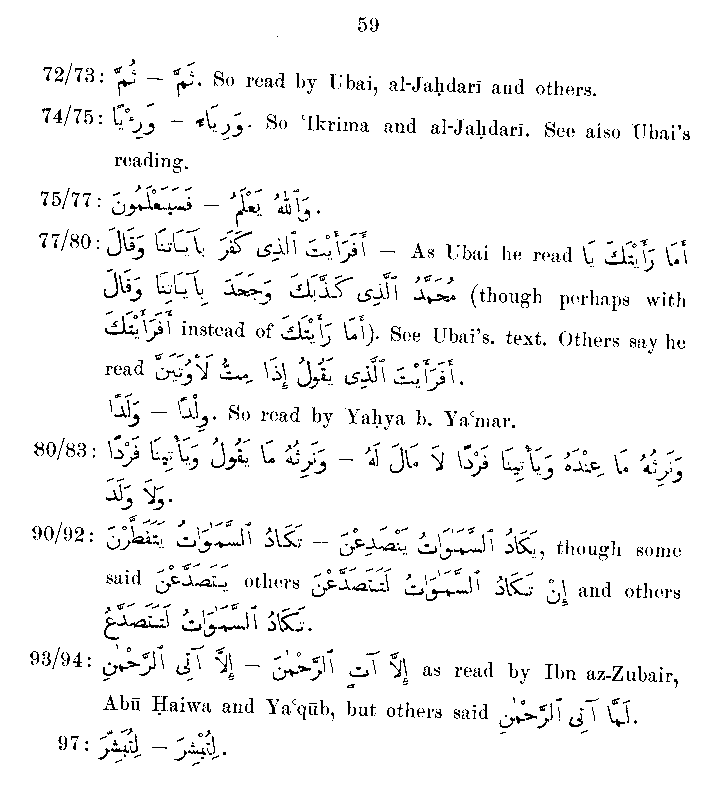 59
72/73: ثُمَّ — ثَمَّ. So read by Ubai, al-Jaḥdarī and others.
74/75: وَرِءْيًا — وَرِيَاءً. So ʿIkrima and al-Jaḥdarī. See also Ubai's
reading.
75/77: فَسَيَعْلَمُونَ — وَٱللّٰهُ يَعْلَمُ.
77/80: أَفَرَأَيْتَ ٱلَّذِى كَفَرَ بِآيَاتِنَا وَقَالَ — As Ubai he read أَمَا رَأَيْتَكَ يَا
مُحَمَّدُ ٱلَّذِى كَذَّبَكَ وَجَحَدَ بِآيَاتِنَا وَقَالَ (though perhaps with
أَفَرَأَيْتَكَ instead of أَمَا رَأَيْتَكَ). See Ubai's. text. Others say he
read أَفَرَأَيْتَ ٱلَّذِى يَقُولُ إِذَا مِتُّ لَأُوتَيَنَّ.
وَلَدًا — وِلْدًا. So read by Yaḥya b. Yaʿmar.
80/83: وَنَرِثُهُ مَا يَقُولُ وَيَأْتِينَا فَرْدًا — وَنَرِثُهُ مَا عِنْدَهُ وَيَأْتِينَا فَرْدًا لَا مَالَ لَهُ
وَلَا وَلَدَ.
90/92: تَكَادُ ٱلسَّمَٰوَاتُ يَتَفَطَّرْنَ — تَكَادُ ٱلسَّمَٰوَاتُ يَنْصَدِعْنَ, though some
said يَتَصَدَّعْنَ others إِنْ تَكَادُ ٱلسَّمَٰوَاتُ لَتَتَصَدَّعْنَ and others
تَكَادُ ٱلسَّمَٰوَاتُ لَتَتَصَدَّعُ.
93/94: إِلَّا آتِى ٱلرَّحْمٰنِ — إِلَّا آتٍ ٱلرَّحْمٰنَ as read by Ibn az-Zubair,
Abū Ḥaiwa and Yaʿqūb, but others said لَمَّا آتِى ٱلرَّحْمٰنِ.
97: لِتُبَشِّرَ — لِتُبْشِرَ.